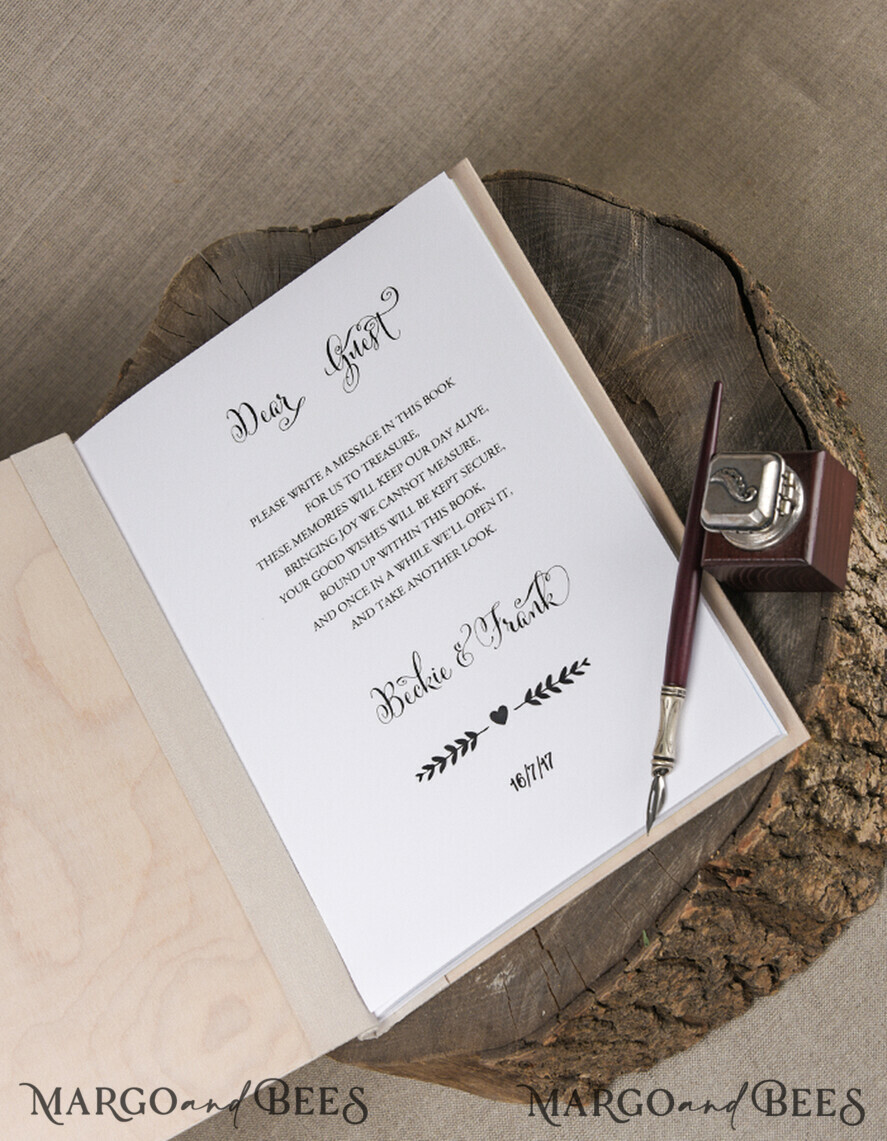 Dear Guest
PLEASE WRITE A MESSAGE IN THIS BOOK
FOR US TO TREASURE,
THESE MEMORIES WILL KEEP OUR DAY ALIVE,
BRINGING JOY WE CANNOT MEASURE,
YOUR GOOD WISHES WILL BE KEPT SECURE,
BOUND UP WITHIN THIS BOOK,
AND ONCE IN A WHILE WE'LL OPEN IT,
AND TAKE ANOTHER LOOK.
Beckie & Frank
16/7/17
MARGO and BEES
MARGO and BEES